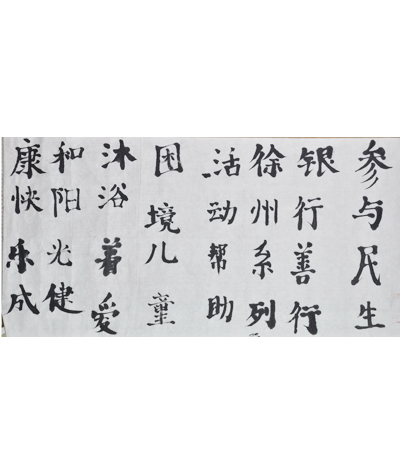 参与民生
银行善行
徐州系列
活动帮助
困境儿童
沐浴着爱
和阳光健
康快乐成